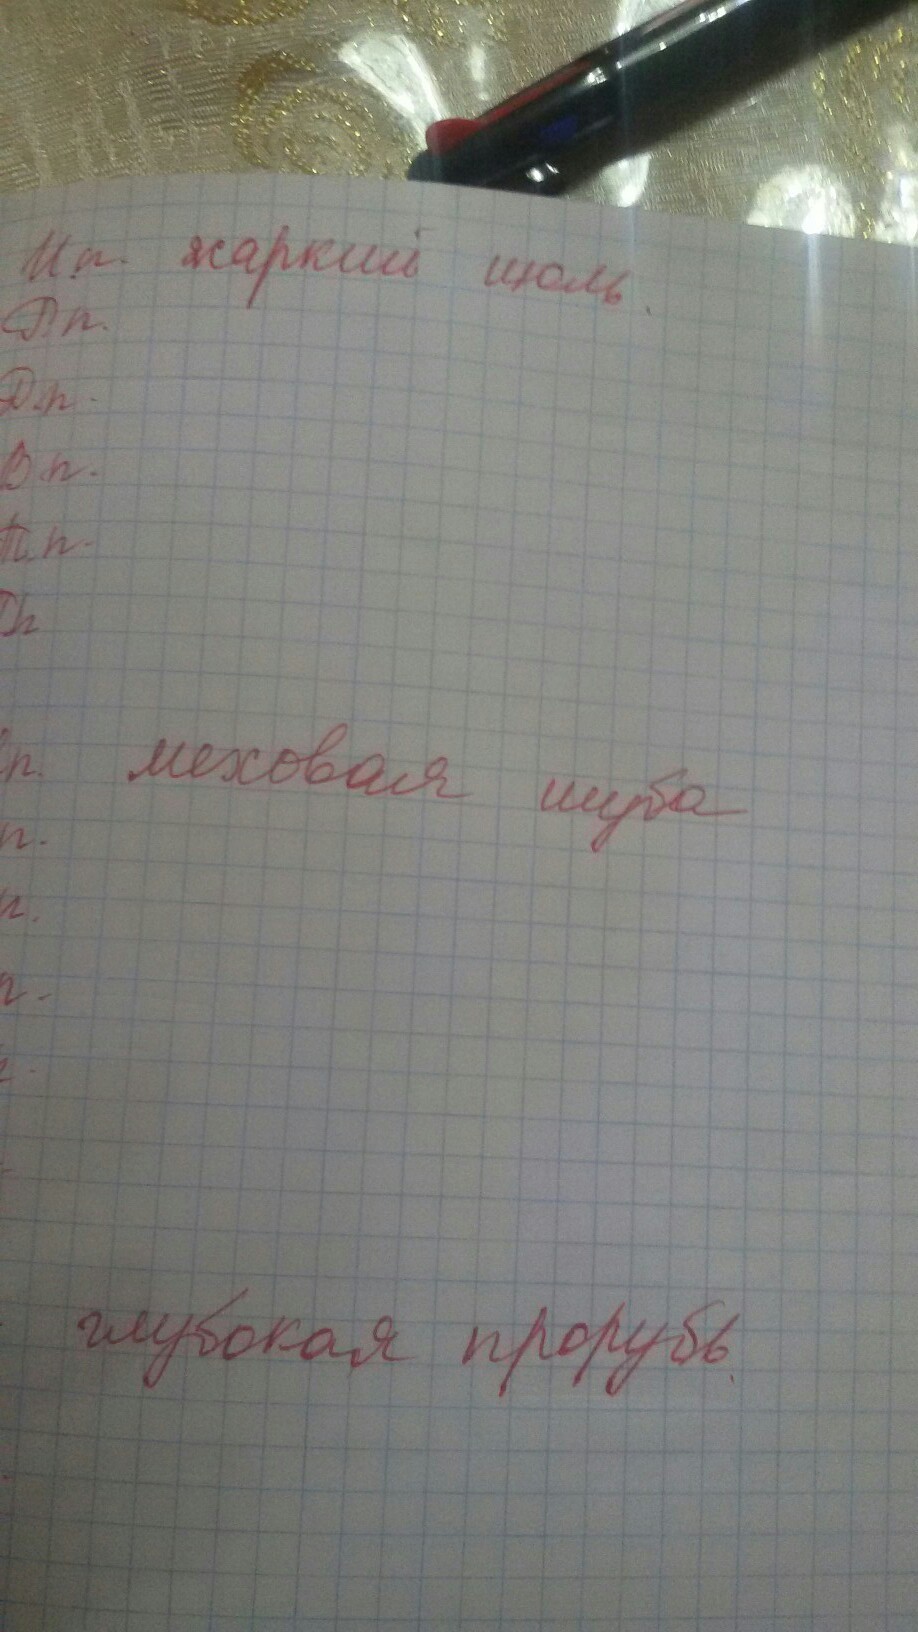 И.п. жаркий июль.
Р.п.
Д.п.
В.п.
Т.п.
П.п
п. меховая шуба
п.
п.
п.
глубокая прорубь.